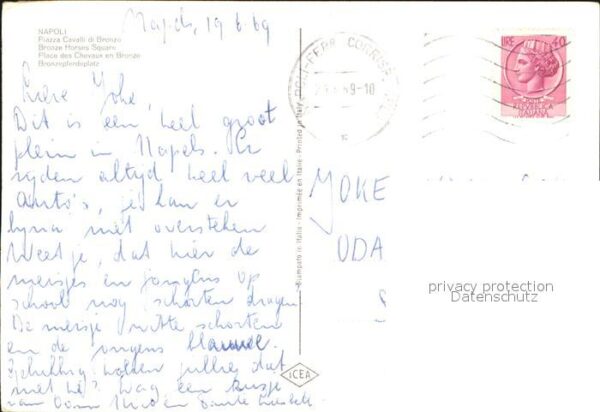 NAPOLI
Piazza Cavalli di Bronzo
Bronze Horses Square
Place des Chevaux en Bronze
Bronzepferdeplatz
Napels, 19 6 69
Lieve Yoke,
Dit is een heel groot
plein in Napels. Er
rijden altijd heel veel
auto's, je kan er
bijna niet oversteken
Weet je, dat hier de
meisjes en jongens op
school nog schorten dragen
De meisjes witte schorten
en de jongens blauwe.
jullie dat
niet hè? Dag een kusje
van Oom en Tante
YOKE
UDA
S
LIRE 40
REPUBBLICA
ITALIANA
CORRISP
69-10
Stampato in Italia - Imprimée en Italie - Printed in Italy
ICEA
privacy protection
Datenschutz